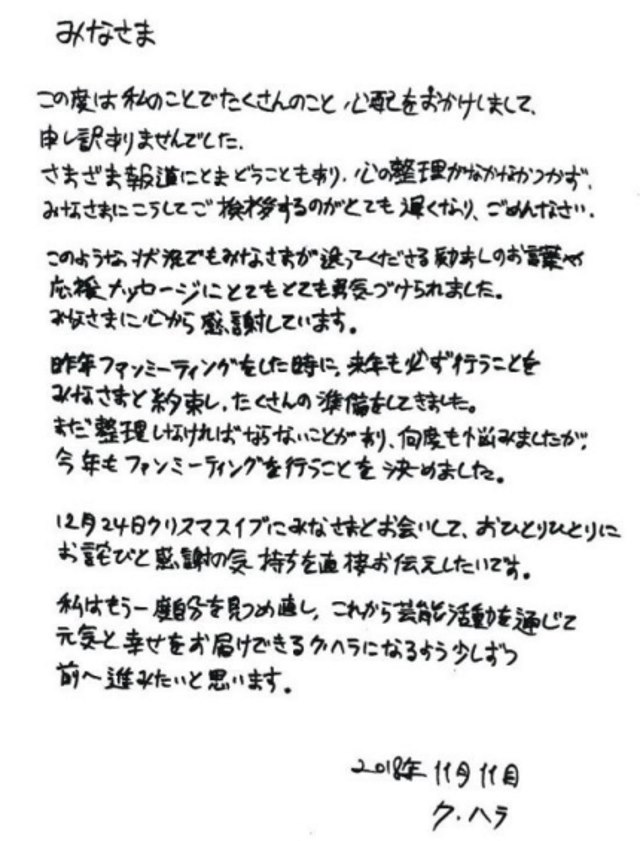 みなさま
この度は私のことでたくさんのこと心配をおかけしまして、
申し訳ありませんでした。
さまざま報道にとまどうこともあり、心の整理がなかなかつかず、
みなさまにこうしてご挨拶するのがとても遅くなり、ごめんなさい。
このような状況でもみなさまが送ってくださる励ましのお言葉や
応援メッセージにとてもとても勇気づけられました。
みなさまに心から感謝しています。
昨年ファンミーティングをした時に、来年も必ず行うことを
みなさまと約束し、たくさんの準備をしてきました。
まだ整理しなければならないことがあり、何度も悩みましたが、
今年もファンミーティングを行うことを決めました。
12月24日クリスマスイブにみなさまとお会いして、おひとりひとりに
お詫びと感謝の気持ちを直接お伝えしたいです。
私はもう一度自分を見つめ直し、これから芸能活動を通じて
元気と幸せをお届けできるク・ハラになるよう少しずつ
前へ進みたいと思います。
2018年11月11日
ク・ハラ